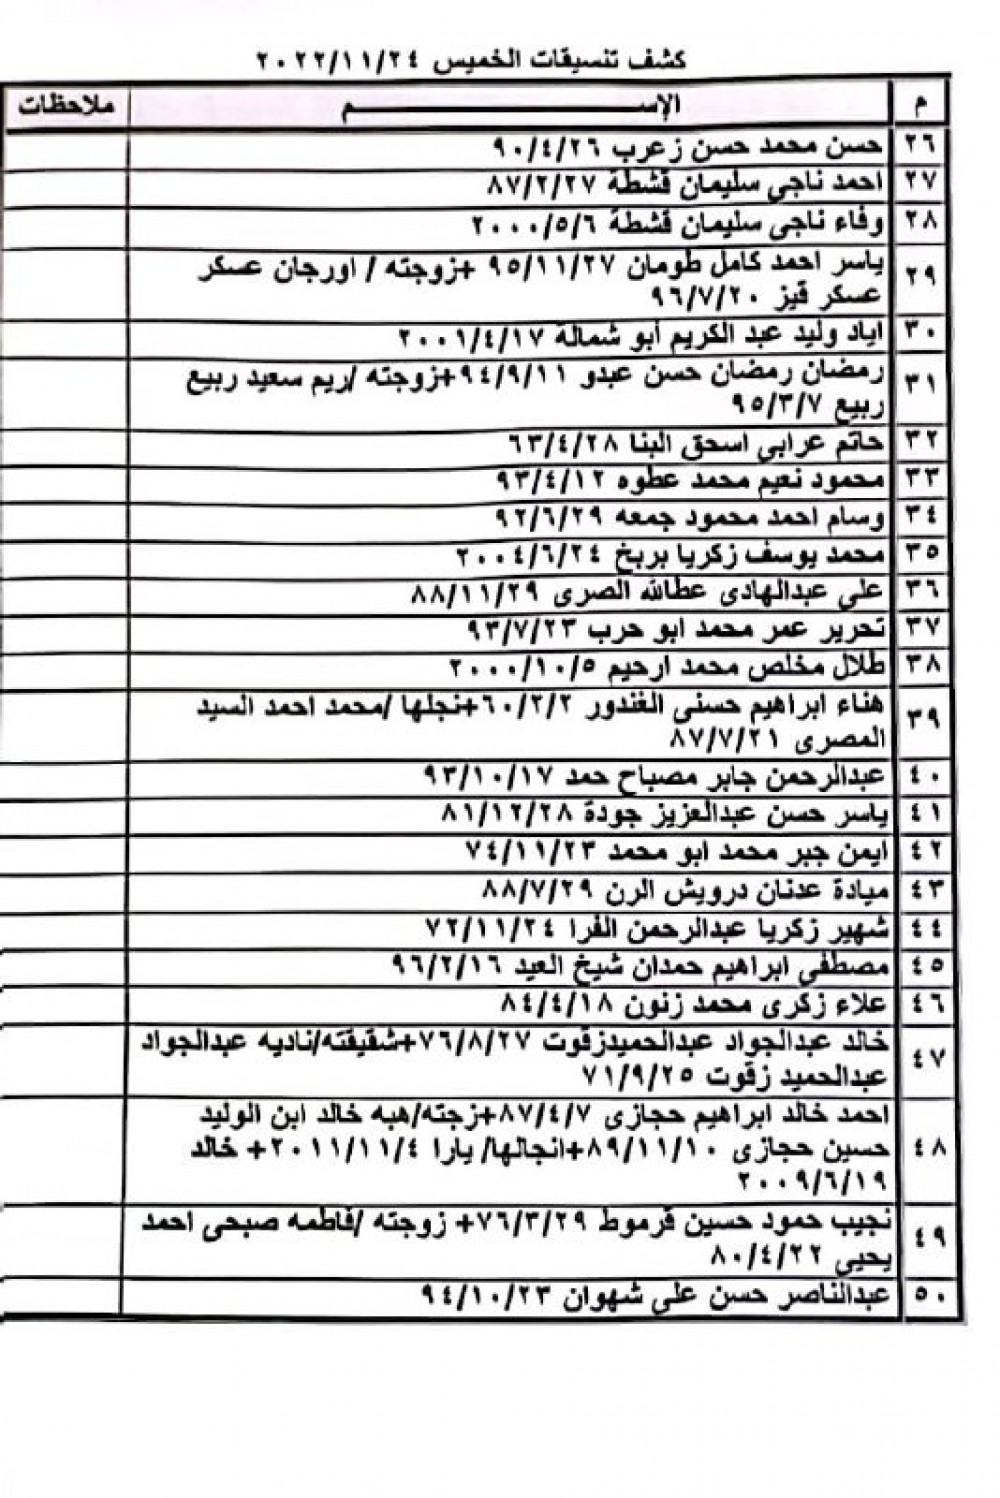 كشف تنسيقات الخميس ٢٠٢٢/١١/٢٤
م الإســـــم ملاحظات
٢٦ حسن محمد حسن زعرب ٩٠/٤/٢٦
٢٧ احمد ناجي سليمان قشطة ٨٧/٢/٢٧
٢٨ وفاء ناجي سليمان قشطة ٢٠٠٠/٥/٦
٢٩ ياسر احمد كامل طومان ٩٥/١١/٢٧ +زوجته / اورجان عسكر
عسكر قيز ٩٦/٧/٢٠
٣٠ اياد وليد عبد الكريم أبو شمالة ٢٠٠١/٤/١٧
٣١ رمضان رمضان حسن عبدو ٩٤/٩/١١+زوجته /ريم سعيد ربيع
ربيع ٩٥/٣/٧
٣٢ حاتم عرابي اسحق البنا ٦٣/٤/٢٨
٣٣ محمود نعيم محمد عطوه ٩٣/٤/١٢
٣٤ وسام احمد محمود جمعه ٩٢/٦/٢٩
٣٥ محمد يوسف زكريا بربخ ٢٠٠٤/٦/٢٤
٣٦ على عبدالهادى عطالله الصرى ٨٨/١١/٢٩
٣٧ تحرير عمر محمد ابو حرب ٩٣/٧/٢٣
٣٨ طلال مخلص محمد ارحيم ٢٠٠٠/١٠/٥
٣٩ هناء ابراهيم حسنى الغندور ٦٠/٢/٢+نجلها /محمد احمد السيد
المصرى ٨٧/٧/٢١
٤٠ عبدالرحمن جابر مصباح حمد ٩٣/١٠/١٧
٤١ ياسر حسن عبدالعزيز جودة ٨١/١٢/٢٨
٤٢ ايمن جبر محمد ابو محمد ٧٤/١١/٢٣
٤٣ ميادة عدنان درويش الرن ٨٨/٧/٢٩
٤٤ شهير زكريا عبدالرحمن الفرا ٧٢/١١/٢٤
٤٥ مصطفى ابراهيم حمدان شيخ العيد ٩٦/٢/١٦
٤٦ علاء زكرى محمد زنون ٨٤/٤/١٨
٤٧ خالد عبدالجواد عبدالحميدزقوت ٧٦/٨/٢٧+شقيقته/ناديه عبدالجواد
عبدالحميد زقوت ٧١/٩/٢٥
٤٨ احمد خالد ابراهيم حجازى ٨٧/٤/٧+زجته/هبه خالد ابن الوليد
حسين حجازى ٨٩/١١/١٠+انجالها/ يارا ٢٠١١/١١/٤+ خالد
٢٠٠٩/٦/١٩
٤٩ نجيب حمود حسين قرموط ٧٦/٣/٢٩+ زوجته /فاطمه صبحى احمد
يحيى ٨٠/٤/٢٢
٥٠ عبدالناصر حسن على شهوان ٩٤/١٠/٢٣